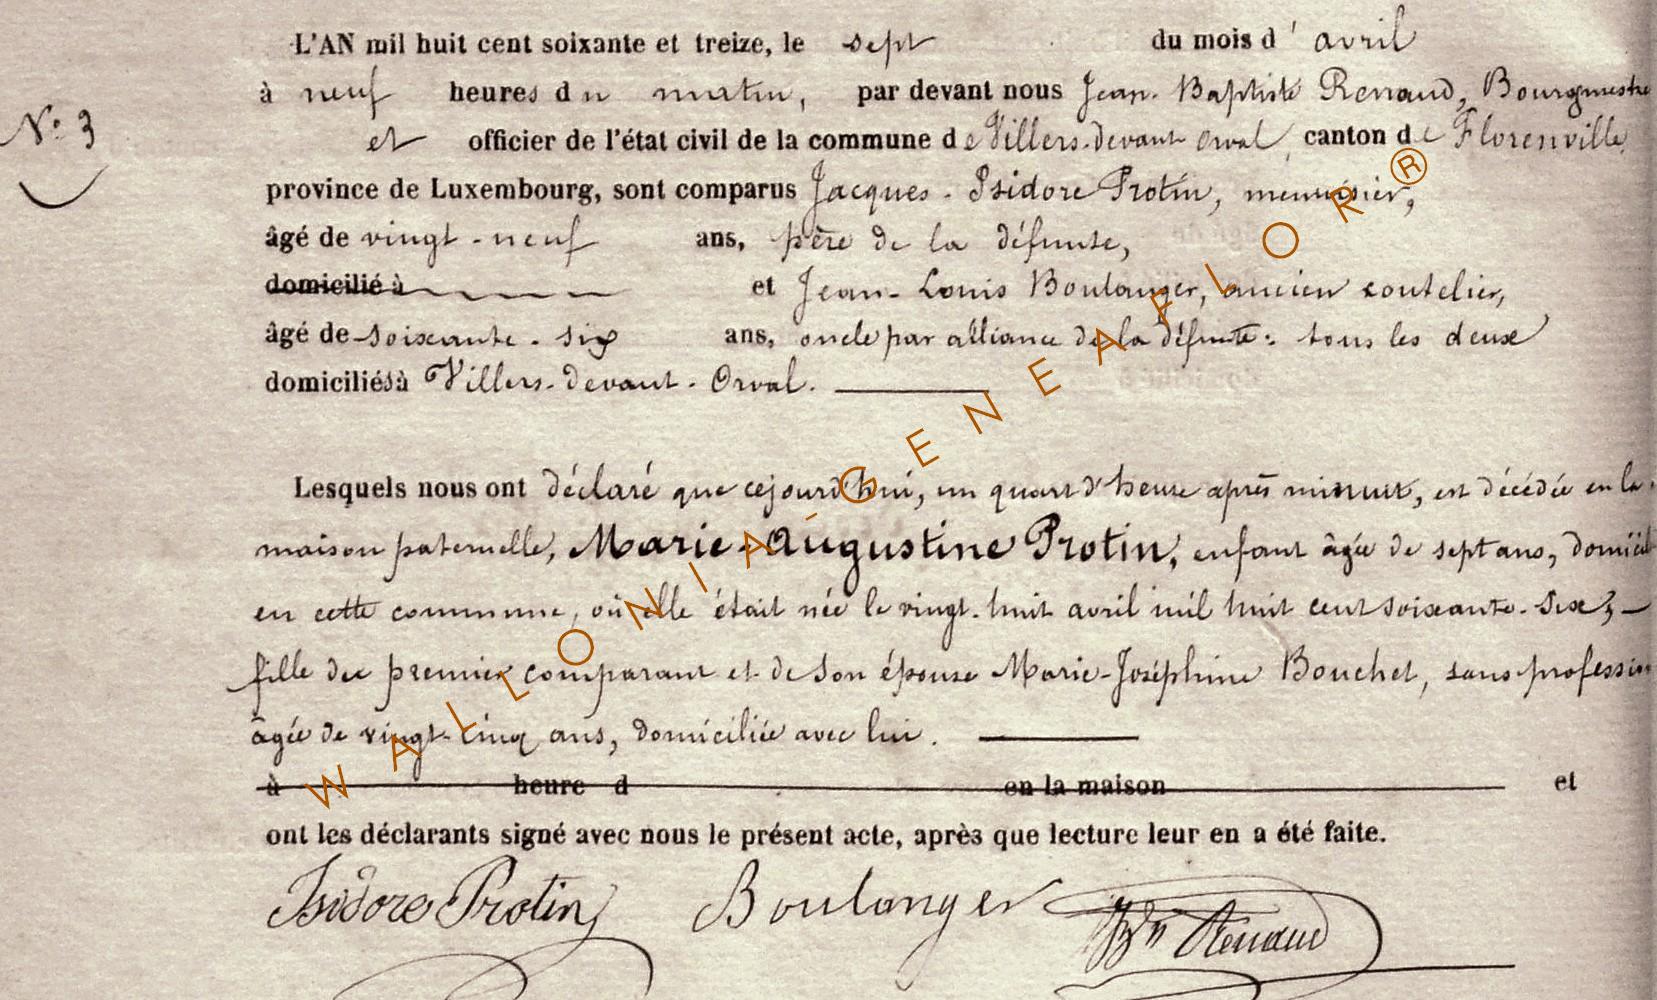 L'AN mil huit cent soixante et treize, le sept du mois d' avril
à neuf heures du matin, par devant nous Jean-Baptiste Renaud, Bourgmestre
N° 3
et officier de l'état civil de la commune de Villers-devant Orval, canton de Florenville,
province de Luxembourg, sont comparus Jacques-Isidore Protin, menuisier,
âgé de vingt-neuf ans, père de la défunte,
domicilié à et Jean-Louis Boulanger, ancien coutelier,
âgé de soixante-six ans, oncle par alliance de la défunte: tous les deux
domiciliés à Villers-devant-Orval.
Lesquels nous ont déclaré que cejourd'hui, un quart d'heure après minuit, est décédée en la
maison paternelle, Marie-Augustine Protin, enfant âgée de sept ans, domicil
en cette commune, où elle était née le vingt-huit avril mil huit cent soixante-six,
fille du premier comparant et de son épouse Marie-Joséphine Bouchet, sans profession
âgée de vingt-cinq ans, domiciliée avec lui.
à heure d en la maison et
ont les déclarants signé avec nous le présent acte, après que lecture leur en a été faite.
Isidore Protin Boulanger Renaud
WALLONIA-GENEAFLOR®